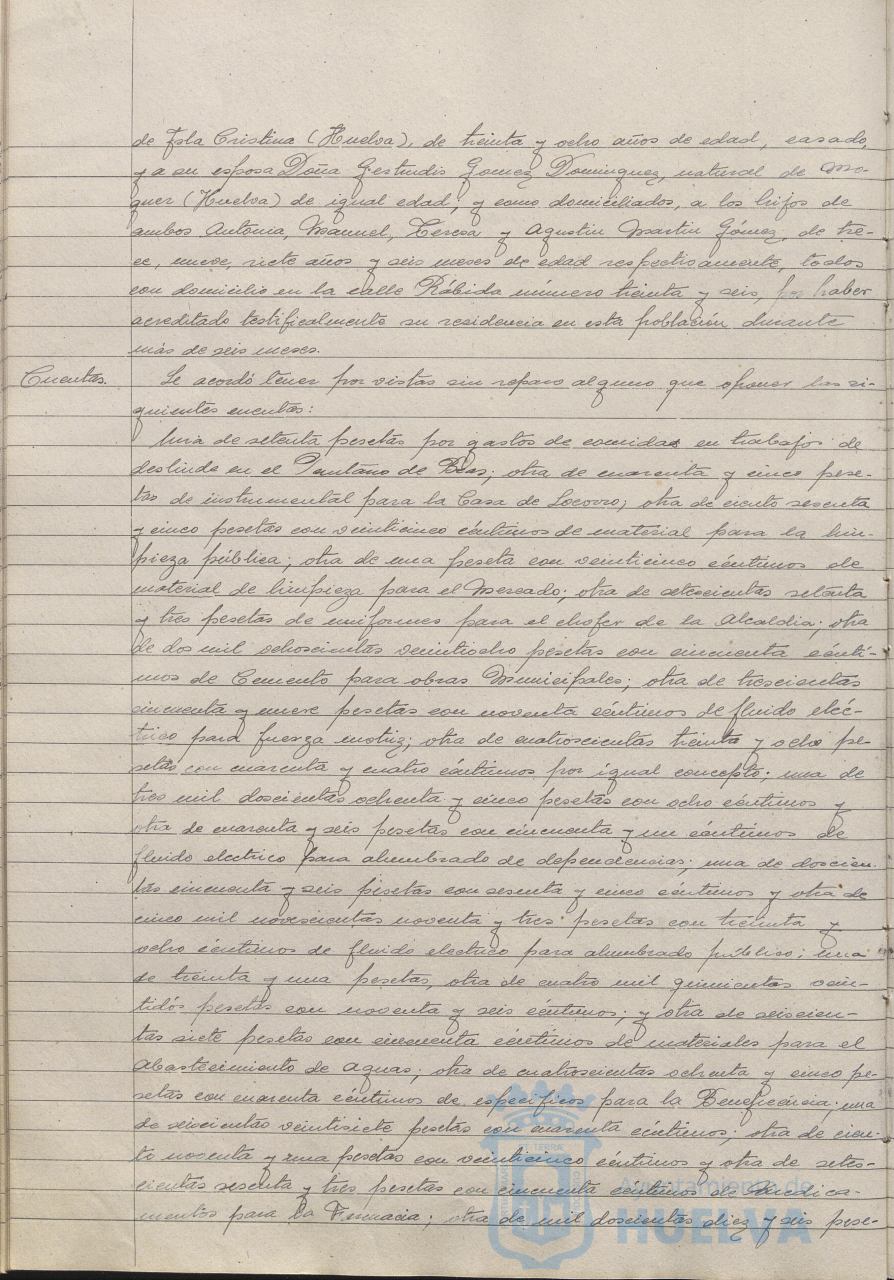 de Isla Cristina (Huelva), de treinta y ocho años de edad, casado,
y a su esposa Doña Gertrudis Gomez Dominguez, natural de Mo-
guer (Huelva) de igual edad; y como domiciliados, a los hijos de
ambos Antonia, Manuel, Teresa y Agustin Martin Gómez, de tre-
ce, nueve, siete años y seis meses de edad respectivamente, todos
con domicilio en la calle Rábida número treinta y seis, por haber
acreditado testificalmente su residencia en esta población durante
más de seis meses.
Cuentas.
Se acordó tener por vistas sin reparo alguno que oponer las si-
guientes cuentas:
Una de setenta pesetas por gastos de comidas en trabajos de
deslinde en el Pantano de Beas; otra de cuarenta y cinco pese-
tas de instrumental para la Casa de Socorro; otra de ciento sesenta
y cinco pesetas con veinticinco céntimos de material para la lim-
pieza pública; otra de una peseta con veinticinco céntimos de
material de limpieza para el Mercado; otra de setecientas setenta
y tres pesetas de uniformes para el chofer de la Alcaldia; otra
de dos mil ochocientas veintiocho pesetas con cincuenta cénti-
mos de Cemento para obras Municipales; otra de trescientas
cincuenta y nueve pesetas con noventa céntimos de fluido eléc-
trico para fuerza motriz; otra de cuatroscientas treinta y ocho pe-
setas con cuarenta y cuatro céntimos por igual concepto; una de
tres mil doscientas ochenta y cinco pesetas con ocho céntimos y
otra de cuarenta y seis pesetas con cincuenta y un céntimos de
fluido electrico para alumbrado de dependencias; una de doscien-
tas cincuenta y seis pesetas con sesenta y cinco céntimos y otra de
cinco mil novescientas noventa y tres pesetas con treinta y
ocho céntimos de fluido electrico para alumbrado público; una
de treinta y una pesetas, otra de cuatro mil quinientas vein-
tidós pesetas con noventa y seis céntimos; y otra de seiscien-
tas siete pesetas con cincuenta céntimos de materiales para el
Abastecimiento de Aguas; otra de cuatroscientas ochenta y cinco pe-
setas con cuarenta céntimos de específicos para la Beneficencia; una
de seiscientas veintisiete pesetas con cuarenta céntimos; otra de cien-
to noventa y una pesetas con veinticinco céntimos y otra de setes-
cientas sesenta y tres pesetas con cincuenta céntimos de medica-
mentos para la Farmacia; otra de mil doscientas diez y seis pese-
Ayuntamiento de
HUELVA